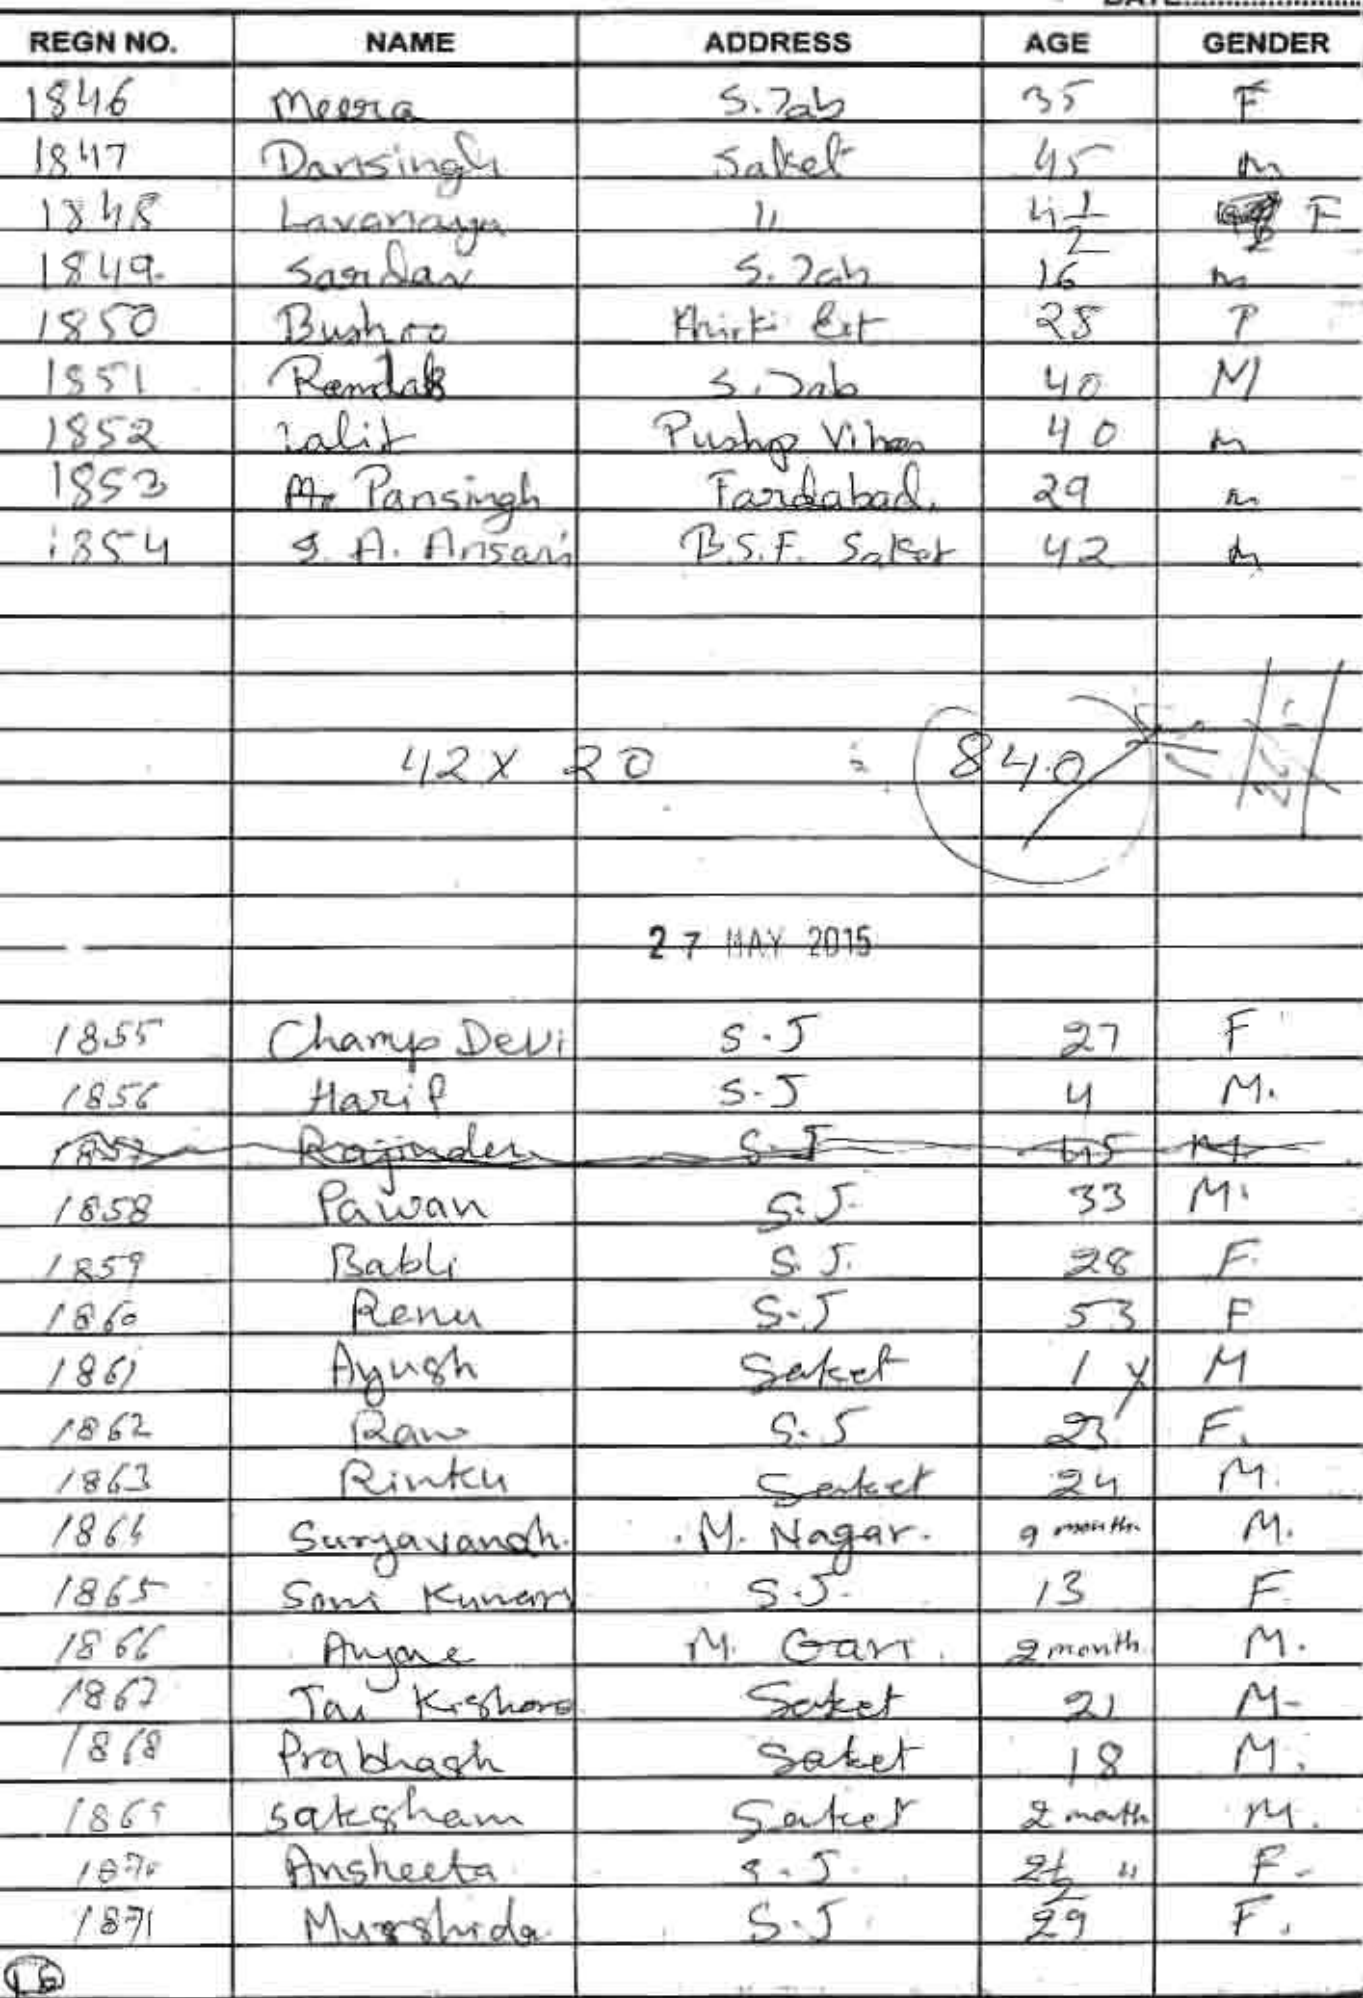 REGN NO. NAME ADDRESS AGE GENDER
1846 Meera S. Jab 35 F
1847 Dansingh Saket 45 m
1848 Lavanaya 11 4 1/2 F
1849. Sardar S. Jab 16 m
1850 Bushra Khirki Ext 25 F
1851 S. Jab 40 M
1852 Lalit Pushp Vihar 40 m
1853 Mr Pansingh Fardabad. 29 m
1854 S. A. Ansari B.S.F. Saket 42 m
42 X 20 = 840
27 MAY 2015
1855 Champ Devi S.J 27 F
1856 Harif S-J 4 M.
1857 Rajinder S-J 45 M
1858 Pawan S.J. 33 M.
1859 Babli S.J. 28 F.
1860 Renu S-J 53 F
1861 Ayush Saket 1 Y M
1862 S.J 23 F.
1863 Rinku Saket 24 M.
1864 Suryavansh. M. Nagar. 9 month M.
1865 Soni Kumari S.J. 13 F
1866 M. 2 month M.
1867 Jai Kishore Saket 21 M-
1868 Prabhash Saket 18 M.
1869 saksham Saket 2 month M.
1870 Ansheeta S.J. 2 1/2 " F-
1871 Murshida S.J 29 F.
16